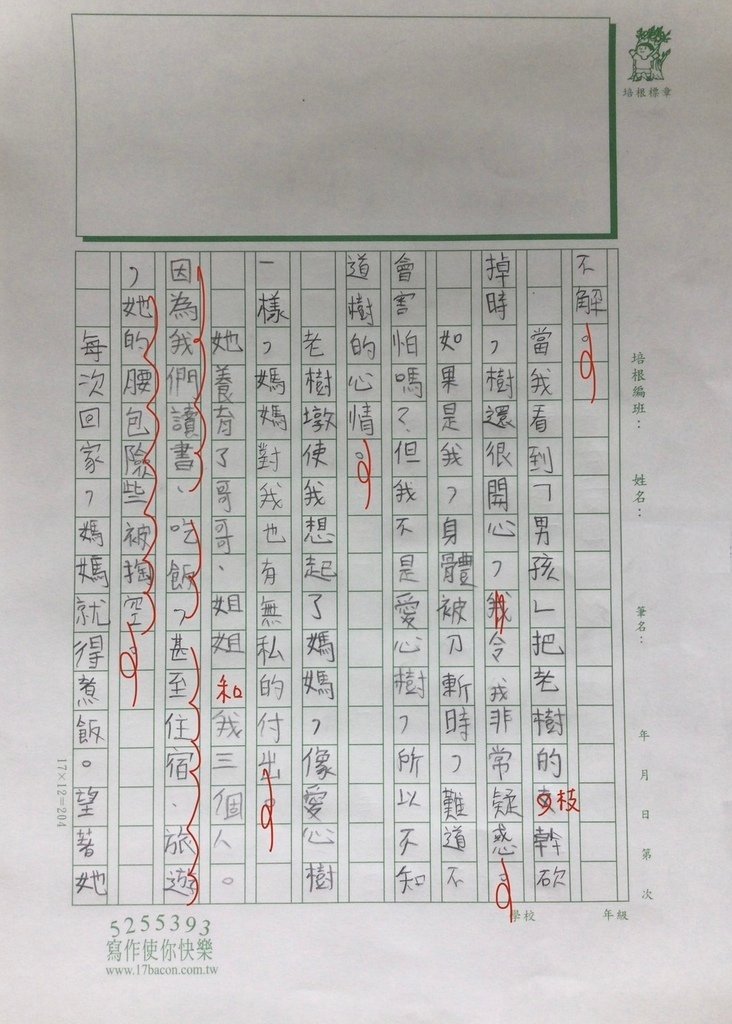 培根標章
培根編班：
姓名：
筆名：
年 月 日 第 次
學校
年級
不解。
當我看到「男孩」把老樹的枝幹砍
掉時，樹還很開心，令我非常疑惑。
如果是我，身體被刀斬時，難道不
會害怕嗎？但我不是愛心樹，所以不知
道樹的心情。
老樹墩使我想起了媽媽，像愛心樹
一樣，媽媽對我也有無私的付出。
她養育了哥哥、姐姐和我三個人。
因為我們讀書、吃飯，甚至住宿、旅遊
，她的腰包險些被掏空。
每次回家，媽媽就得煮飯。望著她
17×12=204
5255393
寫作使你快樂
www.17bacon.com.tw